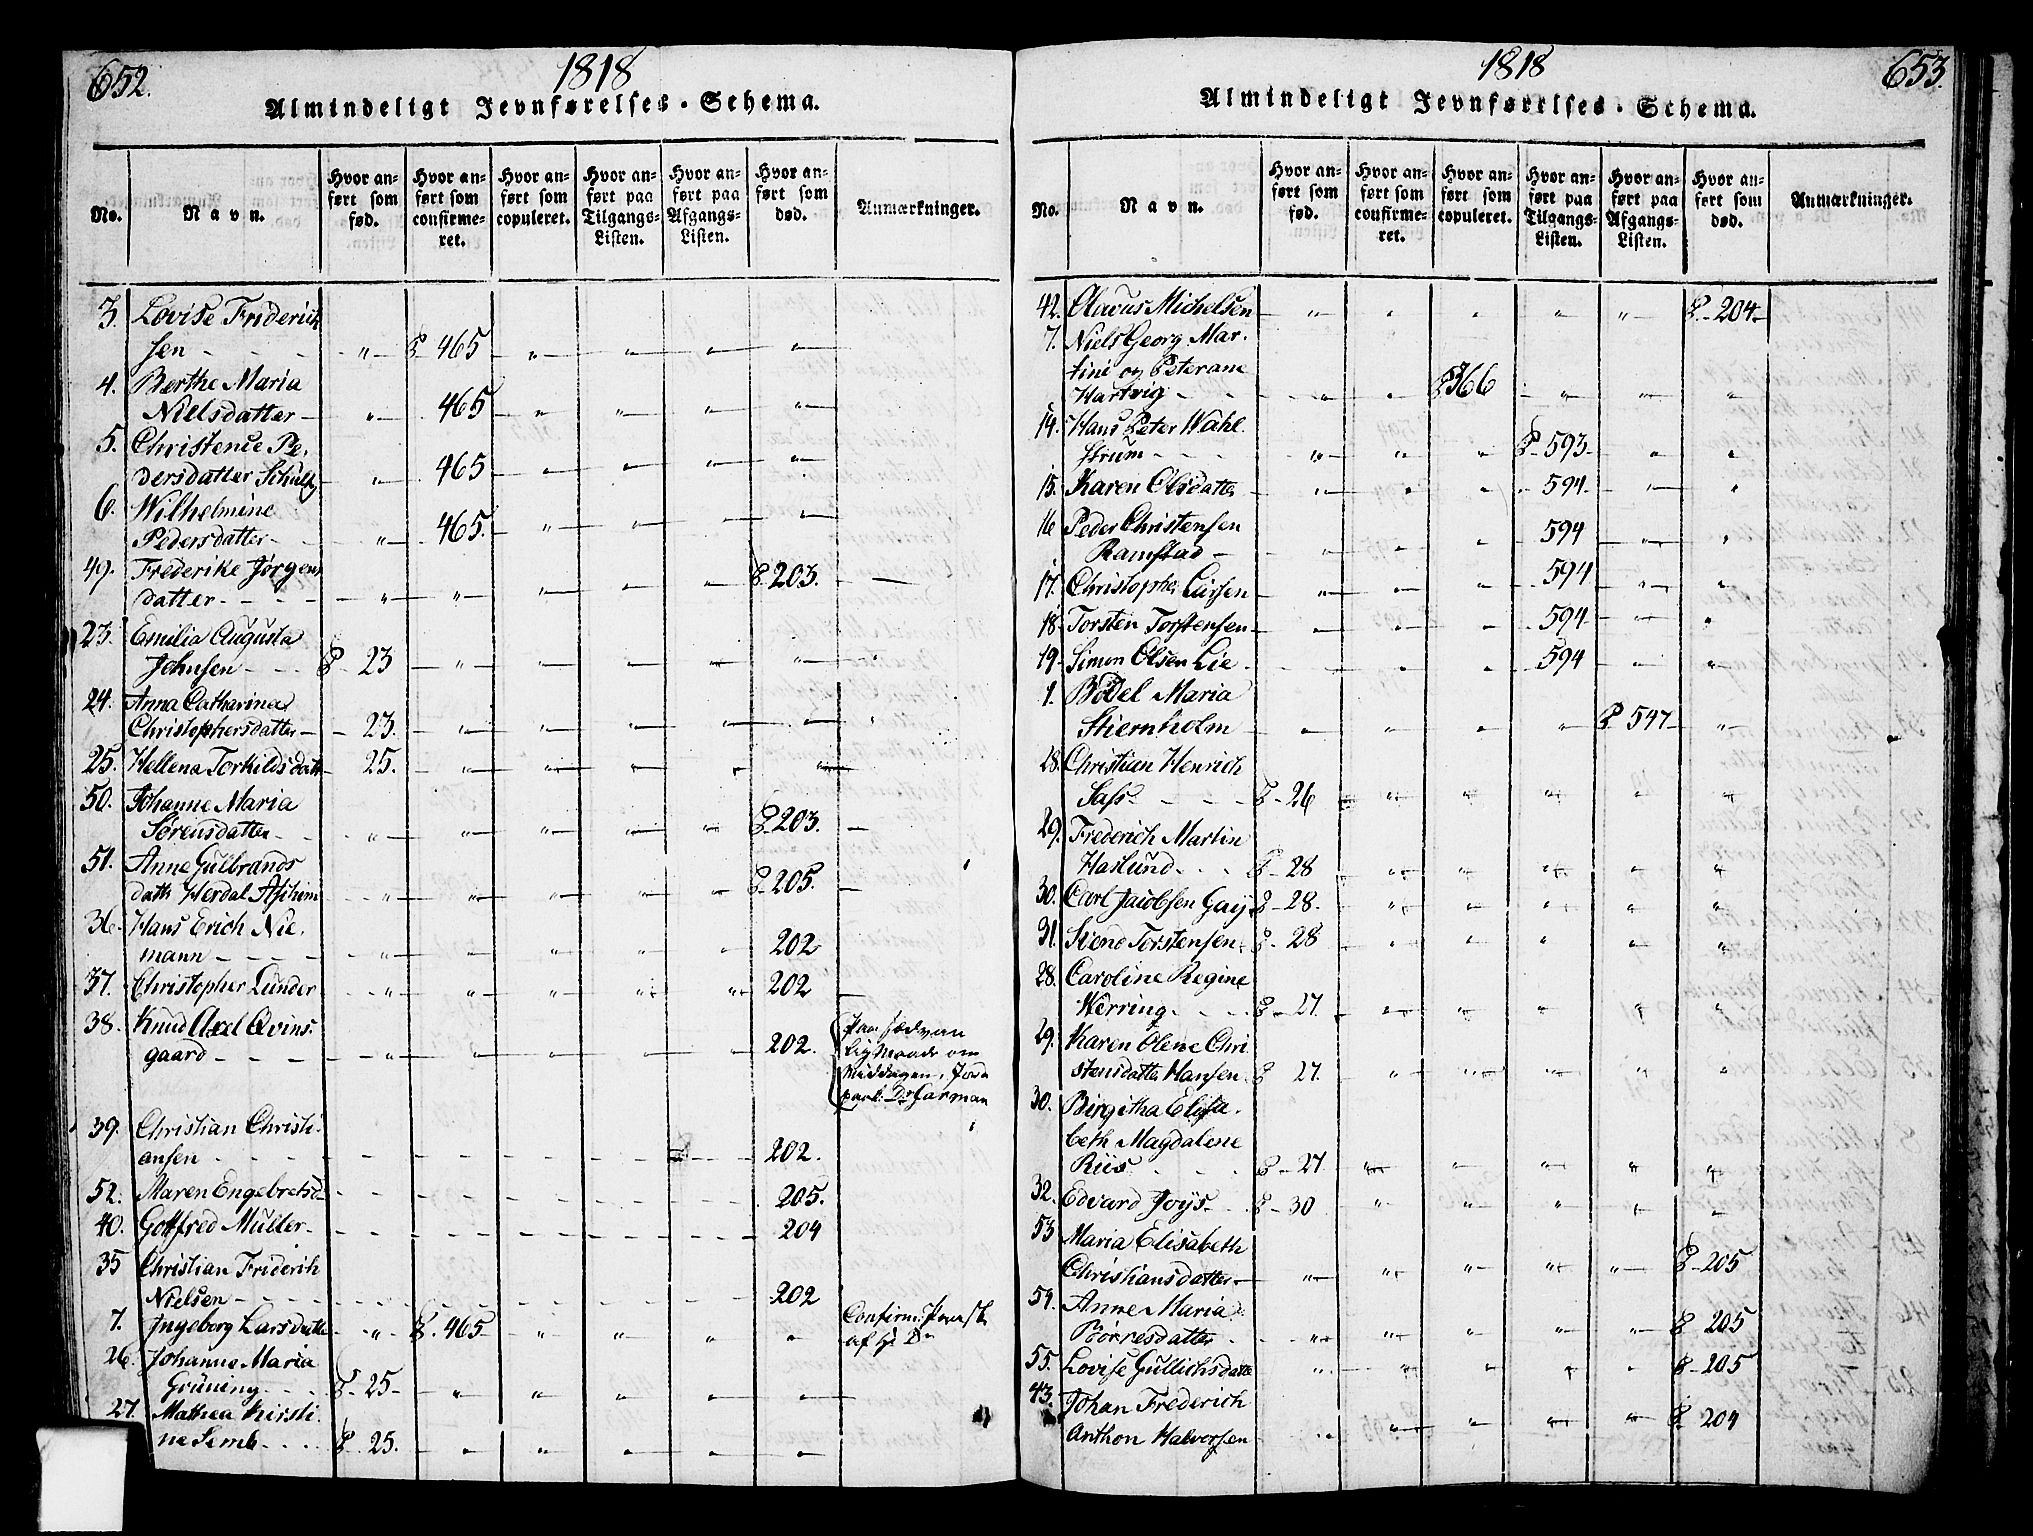 652.
1818
Almindeligt Jevnførelses-Schema.
No.
Navn.
Hvor anført som fød.
Hvor anført som confirmeret.
Hvor anført som copuleret.
Hvor anført paa Tilgangs-Listen.
Hvor anført paa Afgangs-Listen.
Hvor anført som død.
Anmærkninger.
3. Lovise Friderich
sen - - - " P 465 " " " "
4. Berthe Maria
Nielsdatter - " 465 " " " "
5. Christence Pe-
dersdatter Schultz " 465 " " " "
6. Wilhelmine
Pedersdatter - " 465. " " " "
49. Frederike Jørgens
datter - - - " " " " " P. 203.
23. Emilia Augusta
Johnsen - - P 23 " " " " "
24. Anna Catharina
Christophersdatter - 23. " " " " "
25. Hellena Torkildsdatt - 25. " " " " "
50. Johanne Maria
Sørensdatter - " " " " " P. 203.
51. Anne Gulbrands
datt Herdal Aschim " " " " " P. 205.
36. Hans Erich Nie-
mann - - - " " " " " 202
37. Christopher Lunder " " " " " 202
38. Knud Axel Qvins-
gaard - - - " " " " " 202.
Middagen. Jord
39. Christian Christi-
ansen - - - 202.
52. Maren Engebretsd - 205.
40. Gottfred Muller - 204
35 Christian Friderich
Nielsen - - - 202
7. Ingeborg Larsdatte " P. 465 " " " "
Confirm.
26. Johanne Maria
Grüning - - P 25 - " " " " "
27. Mathea Kirsti-
ne Semb - - - P 25. " " " " "
653.
1818
Almindeligt Jevnførelses-Schema.
No.
Navn.
Hvor anført som fød.
Hvor anført som confirmeret.
Hvor anført som copuleret.
Hvor anført paa Tilgangs-Listen.
Hvor anført paa Afgangs-Listen.
Hvor anført som død.
Anmærkninger.
42. Olavus Michelsen " " " " " P. 204
7. Niels Georg Mar-
tini og Peterane
Hartvig - - " " P 366 " " "
14. Hans Peter Wahl-
strum - - - " " " P. 593 " "
15. Karen Olsdatter " " " 594 " "
16 Peder Christensen
Ramstad - " " " 594 " "
17. Christopher Larsen " " " 594 " "
18. Torsten Torstensen " " " 594 " "
19. Simon Olsen Lie - " " " 594 " "
1. Bodel Maria
Stiernholm " " " " P. 547 "
28. Christian Henrich
Sass - - - P - 26 " " " " "
29. Frederich Martin
Haslund - - - P - 28 " " " " "
30. Carl Jacobsen P - 28. " " " " "
31. Torstensen P - 28 " " " " "
28. Caroline Regine
Werring - - - P - 27. " " " " "
29. Karen Olene Chri
stensdatter Hansen P 27. " " " " "
30. Birgitha Elisa-
beth Magdalene
Riis - - - P - 27 " " " " "
32. Edvard Joÿs - P - 30 " " " " "
53 Maria Elisabeth
Christiansdatter " " " " " P - 205
54. Anne Maria
Börresdatter " " " " " P 205
55. Lovise Gullichsdatte " " " " " P - 205
43. Johan Frederich
Anthon Halversen " " " " " P. 204